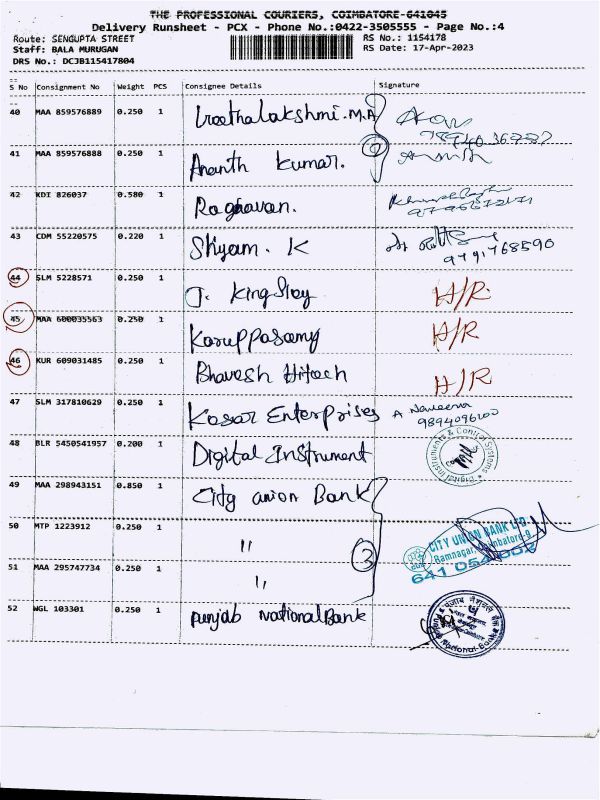 THE PROFESSIONAL COURIERS, COIMBATORE-641045
Delivery Runsheet - PCX - Phone No.:0422-3505555 - Page No.:4
Route: SENGUPTA STREET RS No.: 1154178
Staff: BALA MURUGAN RS Date: 17-Apr-2023
DRS No.: DCJB115417804
S No Consignment No Weight PCS Consignee Details Signature
40 MAA 859576889 0.250 1 M.A
41 MAA 859576888 0.250 1 Ananth Kumar.
42 KDI 826037 0.580 1 Raghavan.
43 CDM 55220575 0.220 1 Shyam. K
9791768590
44 SLM 5228571 0.250 1 J. Kingsloy H/R
45 MAA 600035563 0.250 1 Karuppasamy H/R
46 KUR 609031485 0.250 1 Bhavesh Hitech H/R
47 SLM 317810629 0.250 1 Kosar Enterprises A Naveena
9894096200
48 BLR 5450541957 0.200 1 Digital Instrument
Digital Instruments & Control Systems
49 MAA 298943151 0.850 1 City union Bank
50 MTP 1223912 0.250 1 "
3
CITY UNION BANK LTD.
Ramnagar, Coimbatore-9.
51 MAA 295747734 0.250 1 "
52 WGL 103301 0.250 1 punjab national Bank